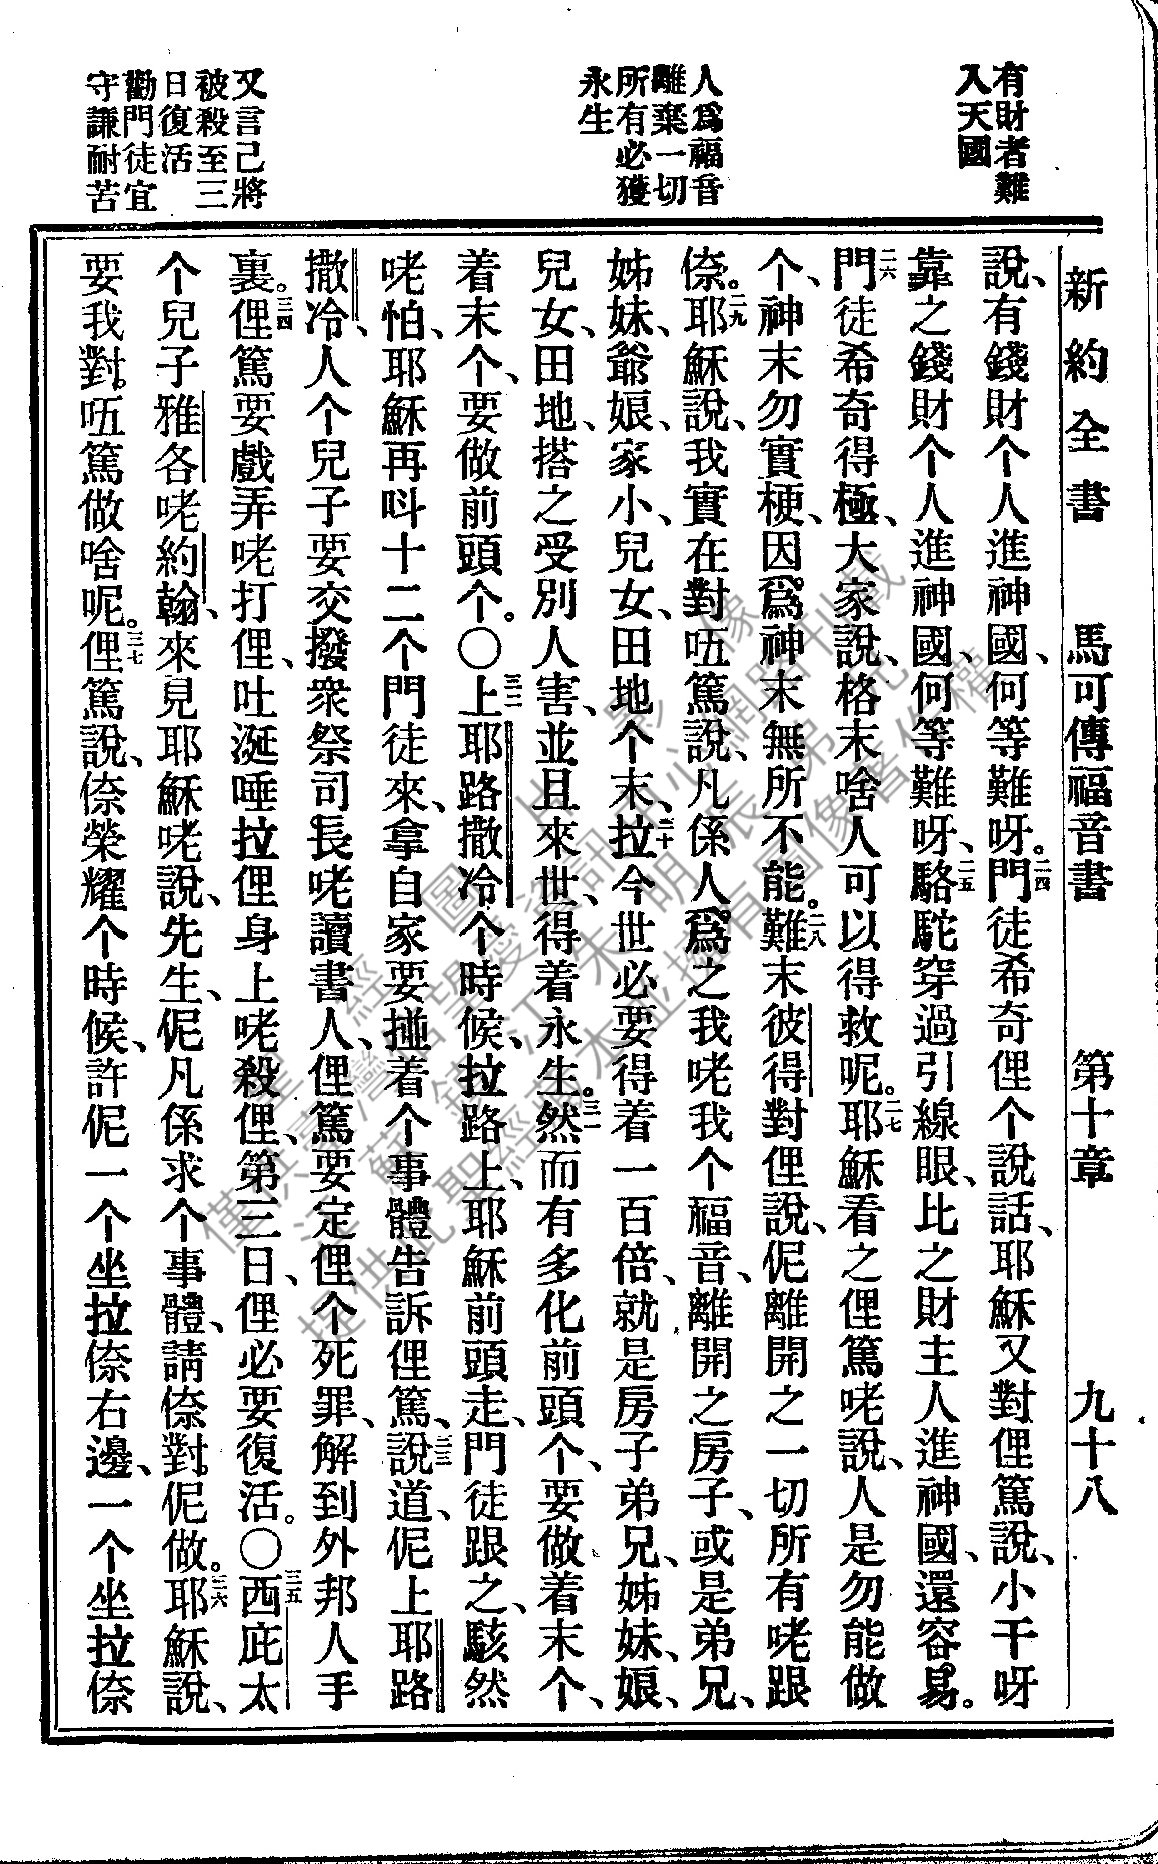 新約全書 馬可傳福音書 第十章 九十八
有財者難
入天國
人爲福音
離棄一切
所有必獲
永生
又言己將
被殺至三
日復活
勸門徒宜
守謙耐苦
說、有錢財个人進神國、何等難呀。二四門徒希奇俚个說話、耶穌又對俚篤說、小干呀
靠之錢財个人進神國、何等難呀、二五駱駝穿過引線眼、比之財主人進神國、還容易。
二六門徒希奇得極、大家說、格末啥人可以得救呢。二七耶穌看之俚篤咾說、人是勿能做
个、神末勿實梗、因爲神末無所不能。二八難末彼得對俚說、伲離開之一切所有咾跟
倷。二九耶穌說、我實在對唔篤說、凡係人爲之我咾我个福音、離開之房子、或是弟兄、
姊妹、爺娘、家小、兒女、田地个末、三十拉今世必要得着一百倍、就是房子弟兄、姊妹、娘、
兒女、田地、搭之受別人害、並且來世、得着永生。三一然而有多化前頭个、要做着末个、
着末个、要做前頭个。〇三二上耶路撒冷个時候、拉路上、耶穌前頭走、門徒跟之、駭然
咾怕、耶穌再呌十二个門徒來、拿自家要撞着个事體告訴俚篤、三三說道、伲上耶路
撒冷、人个兒子要交撥衆祭司長咾讀書人、俚篤要定俚个死罪、解到外邦人手
裏。三四俚篤要戲弄咾打俚、吐涎唾拉俚身上咾殺俚、第三日、俚必要復活。〇三五西庇太
个兒子雅各咾約翰、來見耶穌咾說、先生、伲凡係求个事體、請倷對伲做。三六耶穌說、
要我對唔篤做啥呢。三七俚篤說、倷榮耀个時候、許伲一个坐拉倷右邊、一个坐拉倷